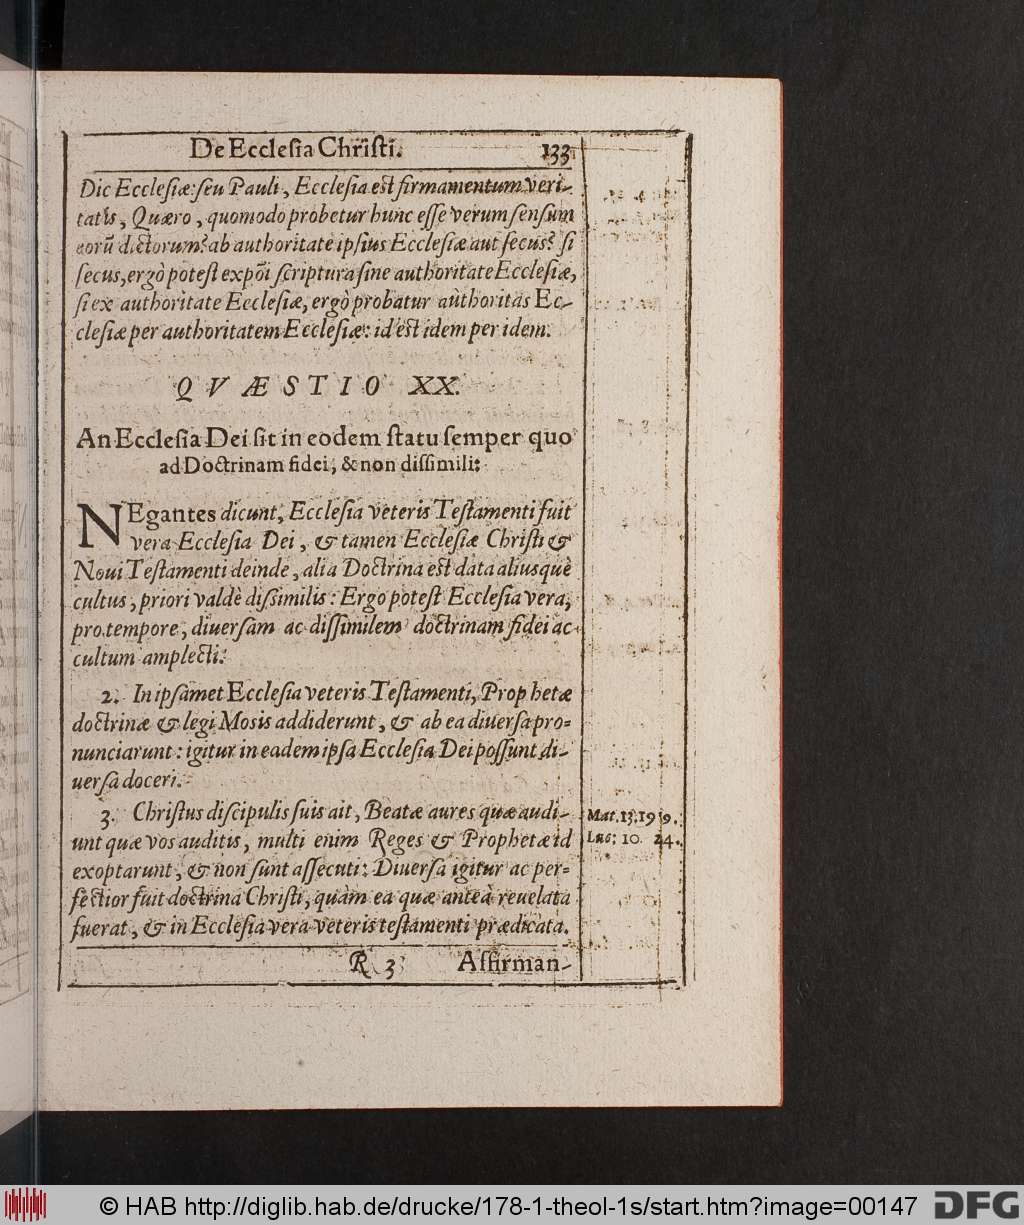 De Ecclesia Christi. 133
Dic Ecclesiæ: seu Pauli, Ecclesia est firmamentum veri-
tatis, Quæro, quomodo probetur hunc esse verum sensum
eorũ dictorum? ab authoritate ipsius Ecclesiæ aut secus? si
secus, ergò potest expõi scriptura sine authoritate Ecclesiæ,
si ex authoritate Ecclesiæ, ergò probatur authoritas Ec-
clesiæ per authoritatem Ecclesiæ: id est idem per idem.
QVÆSTIO XX.
An Ecclesia Dei sit in eodem statu semper quo
ad Doctrinam fidei, & non dissimili:
NEgantes dicunt, Ecclesia veteris Testamenti fuit
vera Ecclesia Dei, & tamen Ecclesiæ Christi &
Noui Testamenti deinde, alia Doctrina est data aliusquè
cultus, priori valdè dissimilis: Ergo potest Ecclesia vera,
pro tempore, diuersam ac dissimilem doctrinam fidei ac
cultum amplecti.
2. In ipsamet Ecclesia veteris Testamenti, Prophetæ
doctrinæ & legi Mosis addiderunt, & ab ea diuersa pro-
nunciarunt: igitur in eadem ipsa Ecclesia Dei possunt di-
uersa doceri.
3. Christus discipulis suis ait, Beatæ aures quæ audi-
unt quæ vos auditis, multi enim Reges & Prophetæ id
exoptarunt, & non sunt assecuti: Diuersa igitur ac per-
fectior fuit doctrina Christi, quàm ea quæ anteà reuelata
fuerat, & in Ecclesia vera veteris testamenti prædicata.
Mat. 13. 19
Luc. 10. 24.
R 3 Affirman-
© HAB http://diglib.hab.de/drucke/178-1-theol-1s/start.htm?image=00147
DFG